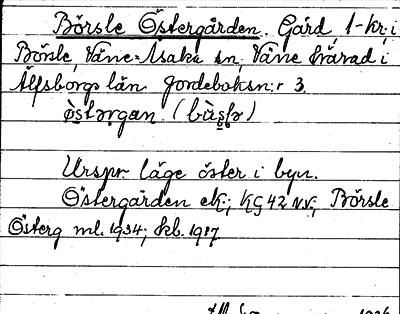 Börsle Östergården. Gård, 1 kr. i
Börsle, Väne-Åsaka sn, Väne härad i
Älfsborgs län Jordeboksn:r 3.
Urspr läge öster i byn.
Östergården ek; KG 42 NV; Börsle
Österg ml. 1934; kb. 1917